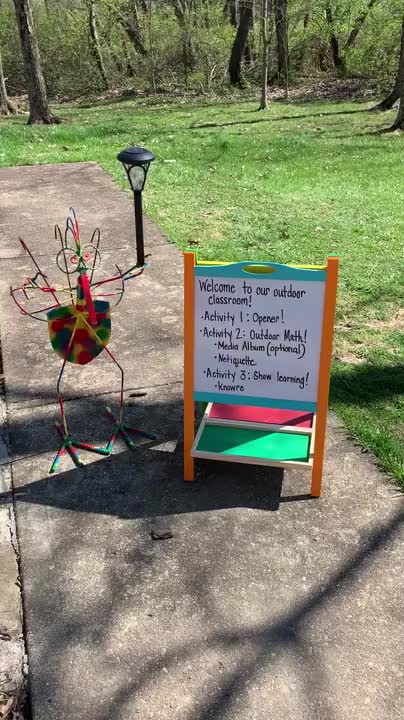 Welcome to our outdoor
classroom!
• Activity 1: Opener!
• Activity 2: Outdoor Math!
• Media Album (optional)
• Netiquette
• Activity 3: Show learning!
• Knowre